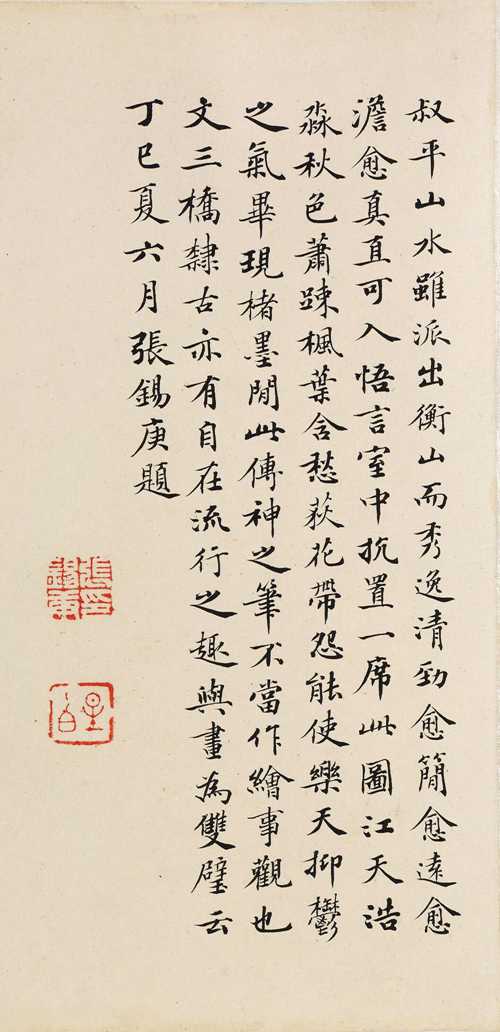 叔平山水雖派出衡山而秀逸清勁愈簡愈遠愈
澹愈真直可入悟言室中抗置一席此圖江天浩
淼秋色蕭踈楓葉含愁荻花帶怨能使樂天抑鬱
之氣畢現楮墨閒此傳神之筆不當作繪事觀也
文三橋隸古亦有自在流行之趣與畫為雙璧云
丁巳夏六月張錫庚題
張印錫庚
星白